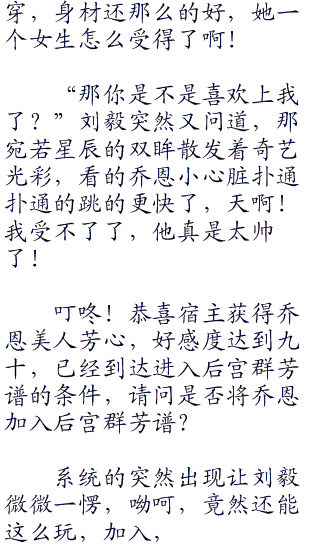 穿，身材还那么的好，她一
个女生怎么受得了啊！
“那你是不是喜欢上我
了？”刘毅突然又问道，那
宛若星辰的双眸散发着奇艺
光彩，看的乔恩小心脏扑通
扑通的跳的更快了，天啊！
我受不了了，他真是太帅
了！
叮咚！恭喜宿主获得乔
恩美人芳心，好感度达到九
十，已经到达进入后宫群芳
谱的条件，请问是否将乔恩
加入后宫群芳谱？
系统的突然出现让刘毅
微微一愣，呦呵，竟然还能
这么玩，加入，